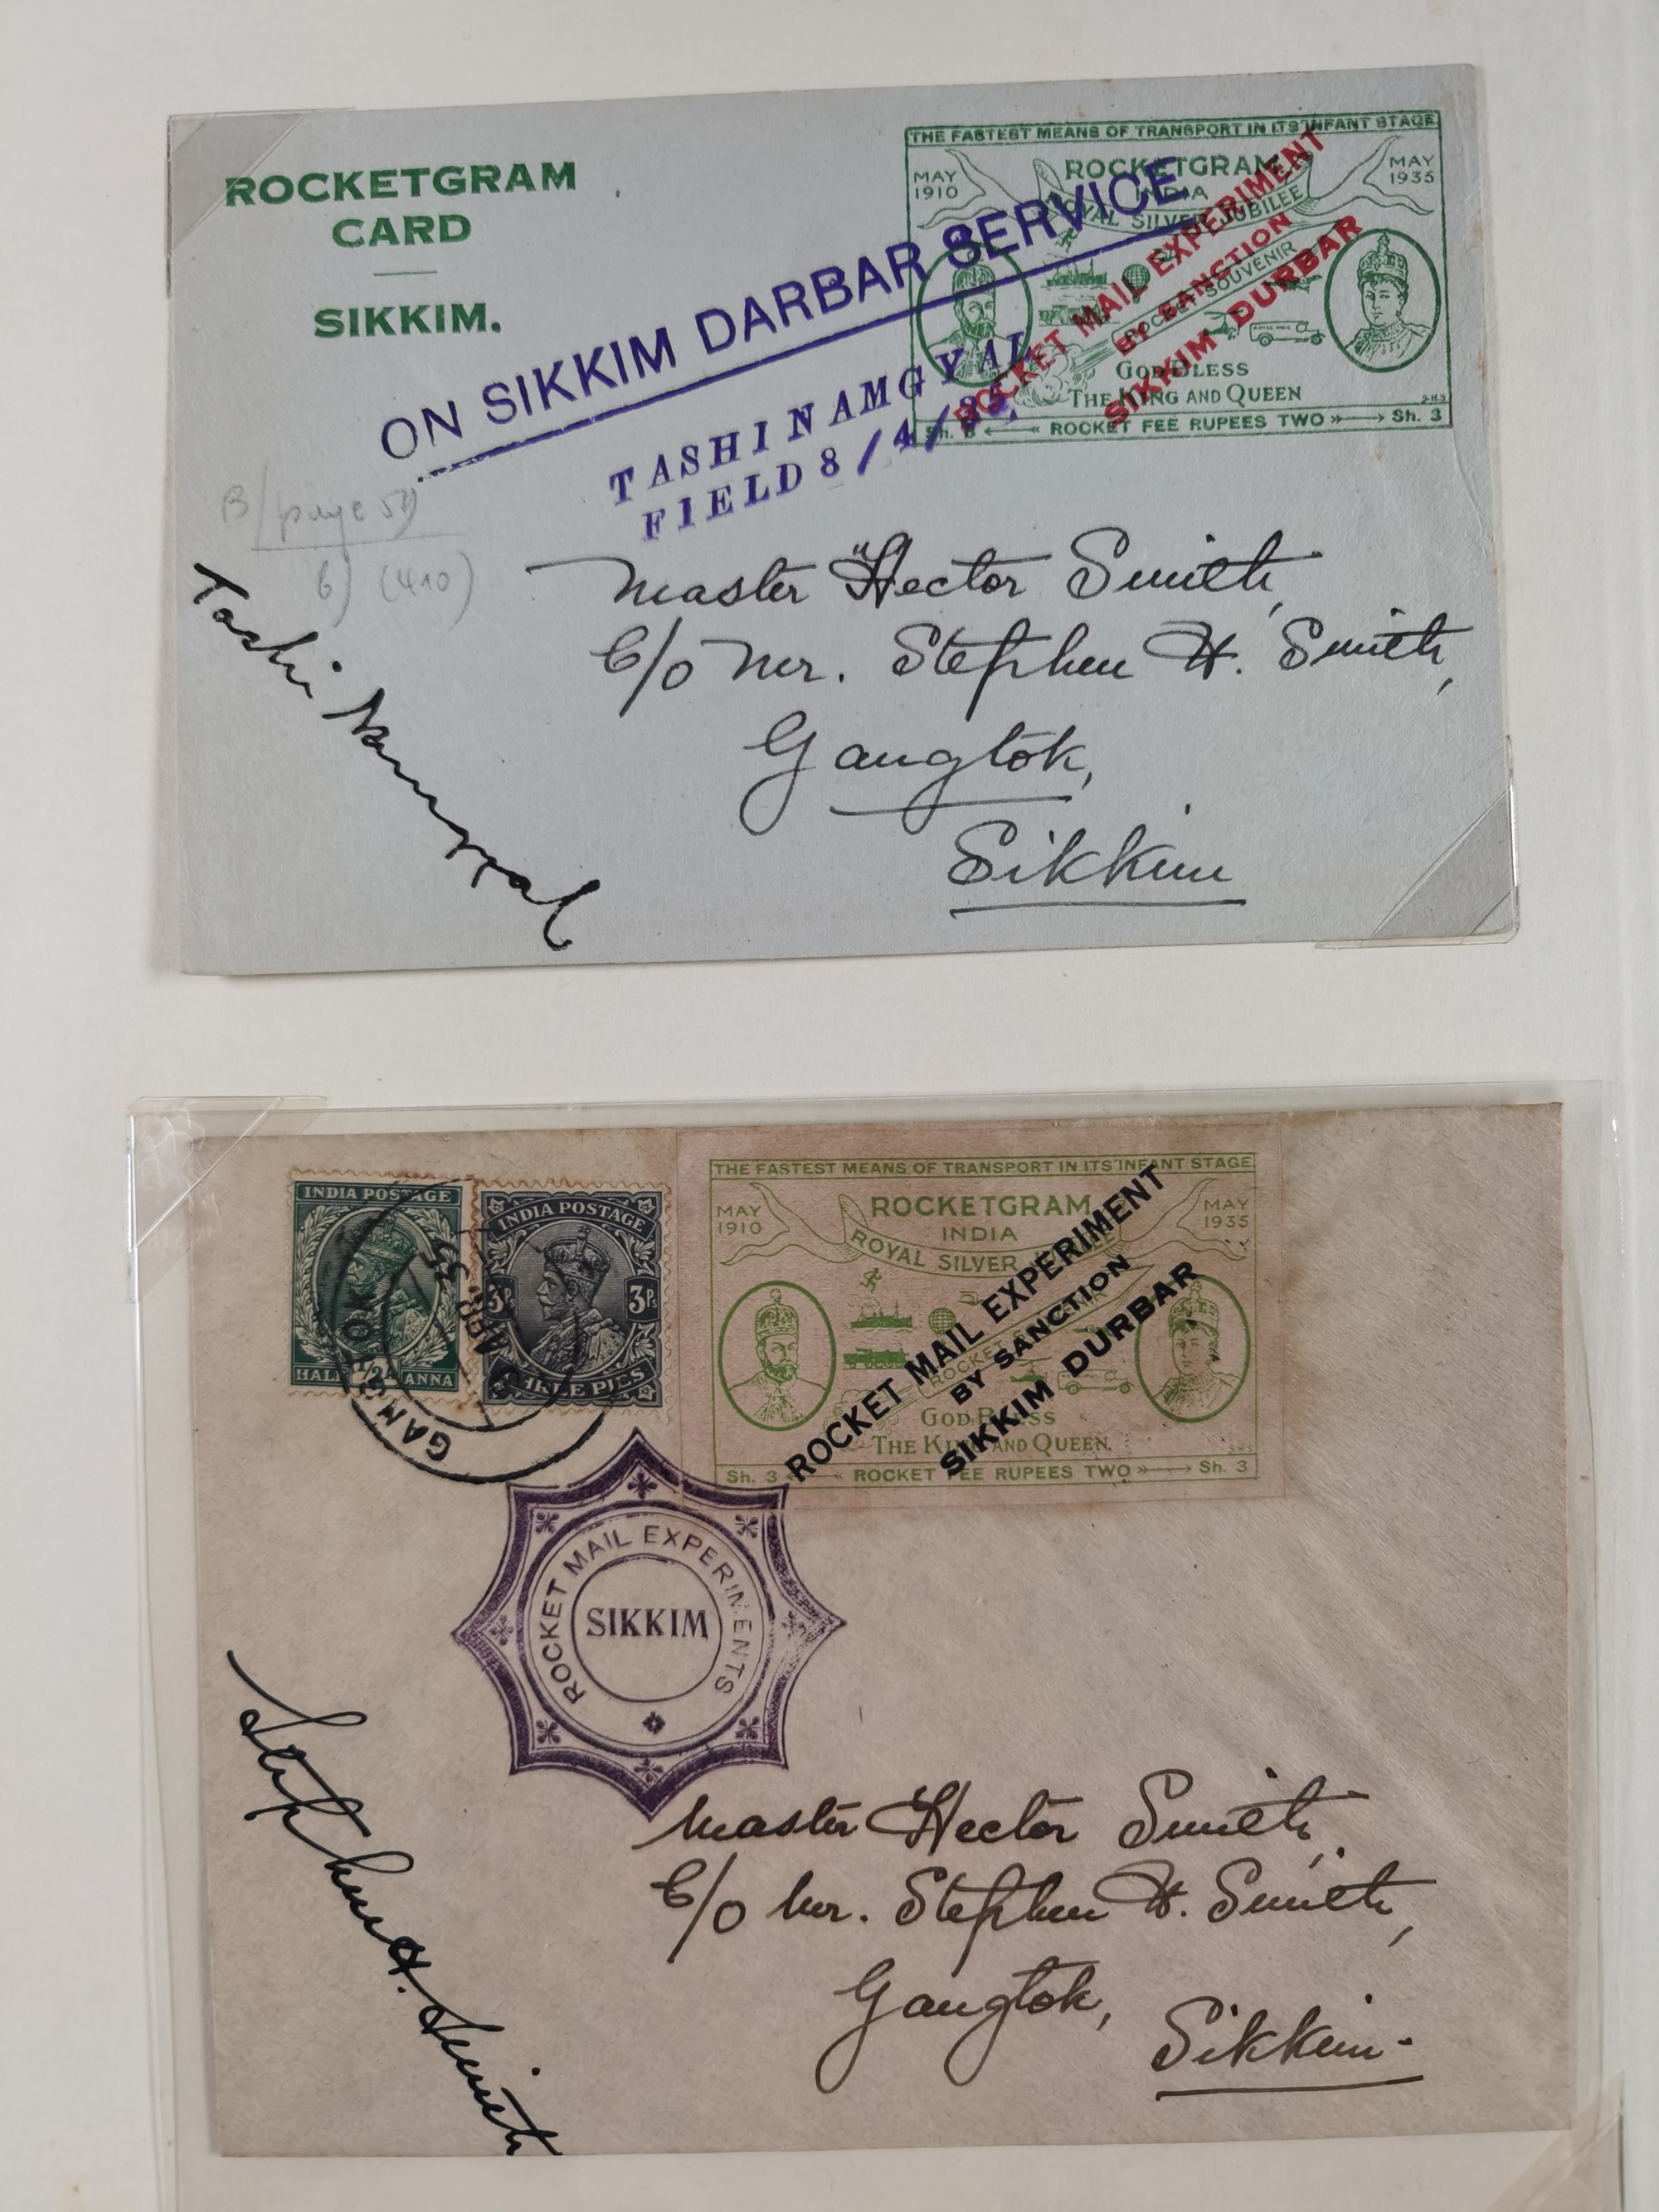 ROCKETGRAM
CARD
SIKKIM.
THE FASTEST MEANS OF TRANSPORT IN ITS INFANT STAGE
MAY
1910
ROCKETGRAM
INDIA
ROYAL SILVER JUBILEE
MAY
1935
ROCKET SOUVENIR
ROYAL MAIL
GOD BLESS
THE KING AND QUEEN
S.H.S
Sh. 3 ROCKET FEE RUPEES TWO Sh. 3
ROCKET MAIL EXPERIMENT
BY SANCTION
SIKKIM DURBAR
ON SIKKIM DARBAR SERVICE
TASHI NAMGYAL
FIELD 8/4/35
B/page 51
6) (410)
Master Hector Smith,
C/o Mr. Stephen H. Smith,
Gangtok,
Sikkim
Tashi Namgyal
INDIA POSTAGE
HALF 1/2 A ANNA
INDIA POSTAGE
3Ps 3Ps
THREE PIES
GANGTOK
APR. 35
THE FASTEST MEANS OF TRANSPORT IN ITS INFANT STAGE
MAY
1910
ROCKETGRAM
INDIA
ROYAL SILVER
MAY
1935
ROCKET
GOD BLESS
THE KING AND QUEEN
S.H.S
Sh. 3 ROCKET FEE RUPEES TWO Sh. 3
ROCKET MAIL EXPERIMENT
BY SANCTION
SIKKIM DURBAR
ROCKET MAIL EXPERIMENTS
SIKKIM
Master Hector Smith,
C/o Mr. Stephen H. Smith,
Gangtok,
Sikkim.
Stephen H. Smith